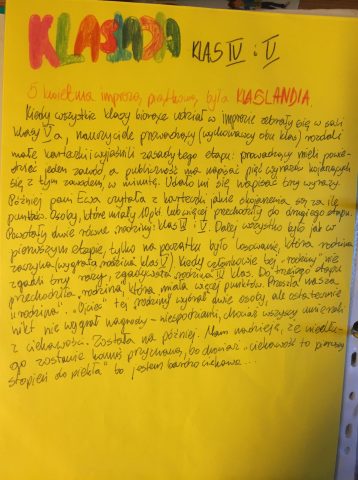 KLASLANDIA KLAS IV i V
5 kwietnia imprezą piątkową była KLASLANDIA.
Kiedy wszystkie klasy biorące udział w imprezie zebrały się w sali
klasy V a, nauczyciele prowadzący (wychowawcy obu klas) rozdali
małe karteczki i wyjaśnili zasady tego etapu: prowadzący mieli powie-
dzieć jeden zawód, a publiczność ma napisać pięć wyrazów kojarzących
się z tym zawodem, w minutę. Udało mi się napisać trzy wyrazy.
Później pani Ewa czytała z karteczki jakie skojarzenia są za ile
punktów. Osoby, które miały 10 pkt. lub więcej przechodziły do drugiego etapu.
Powstały dwie równe rodziny: klas IV i V. Dalej wszystko było jak w
pierwszym etapie, tylko na początku było losowanie, która rodzina
zaczyna (wygrała rodzina klas V) kiedy członkowie tej "rodziny" nie
zgadli trzy razy, zgadywała rodzina IV klas. Do trzeciego etapu
przechodziła "rodzina", która miała więcej punktów. Przeszła nasza
"rodzina". "Ojciec" tej rodziny wybrał dwie osoby, ale ostatecznie
nikt nie wygrał nagrody - niespodzianki, chociaż wszyscy umierali
z ciekawości. Została na później. Mam nadzieję, że niedłu-
go zostanie komuś przyznana, bo chociaż "ciekawość to pierwszy
stopień do piekła" bo jestem bardzo ciekawa...